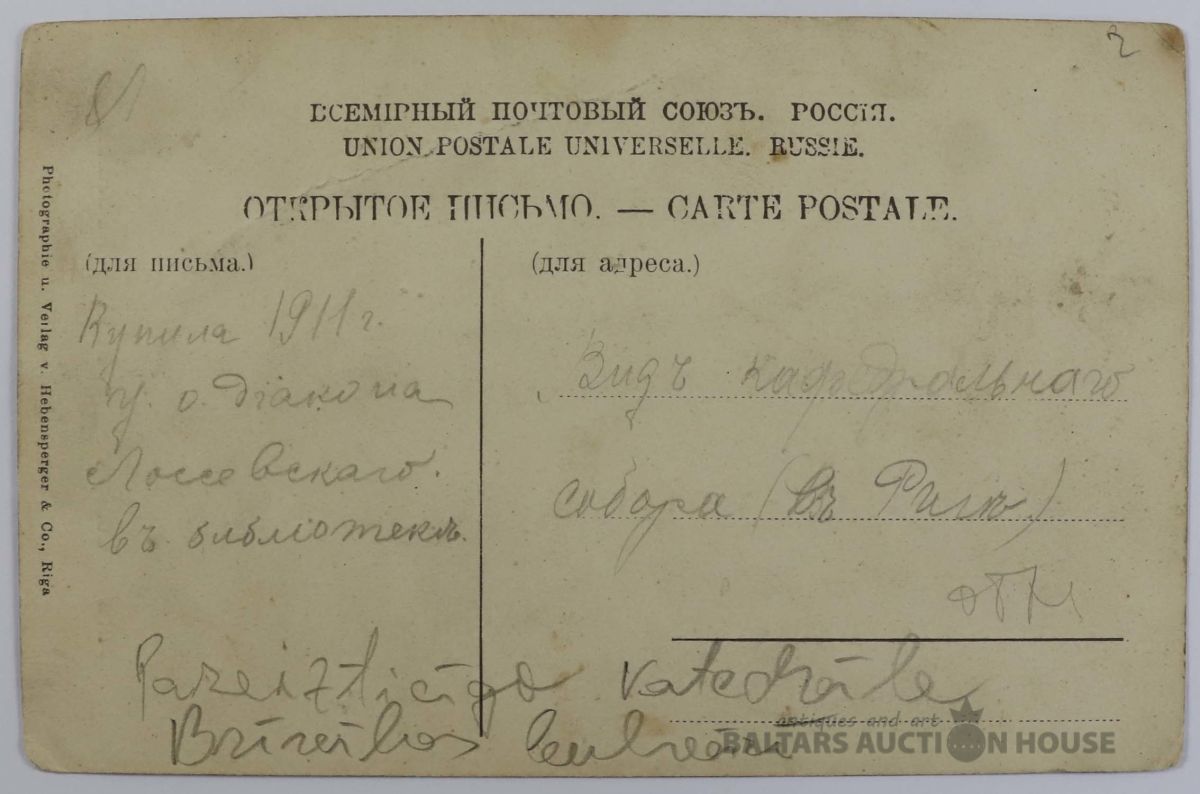 2
ВСЕМІРНЫЙ ПОЧТОВЫЙ СОЮЗЪ. РОССІЯ.
UNION POSTALE UNIVERSELLE. RUSSIE.
ОТКРЫТОЕ ПИСЬМО. — CARTE POSTALE.
(для письма.)
(для адреса.)
Купила 1911 г.
у о. діакона
Лоссевскаго.
въ библіотекѣ.
Видъ кафедральнаго
собора (въ Ригѣ)
Pareizticīgo katedrāle
Brīvības
Photographie u. Verlag v. Hebensperger & Co., Riga
antiques and art
BALTARS AUCTION HOUSE